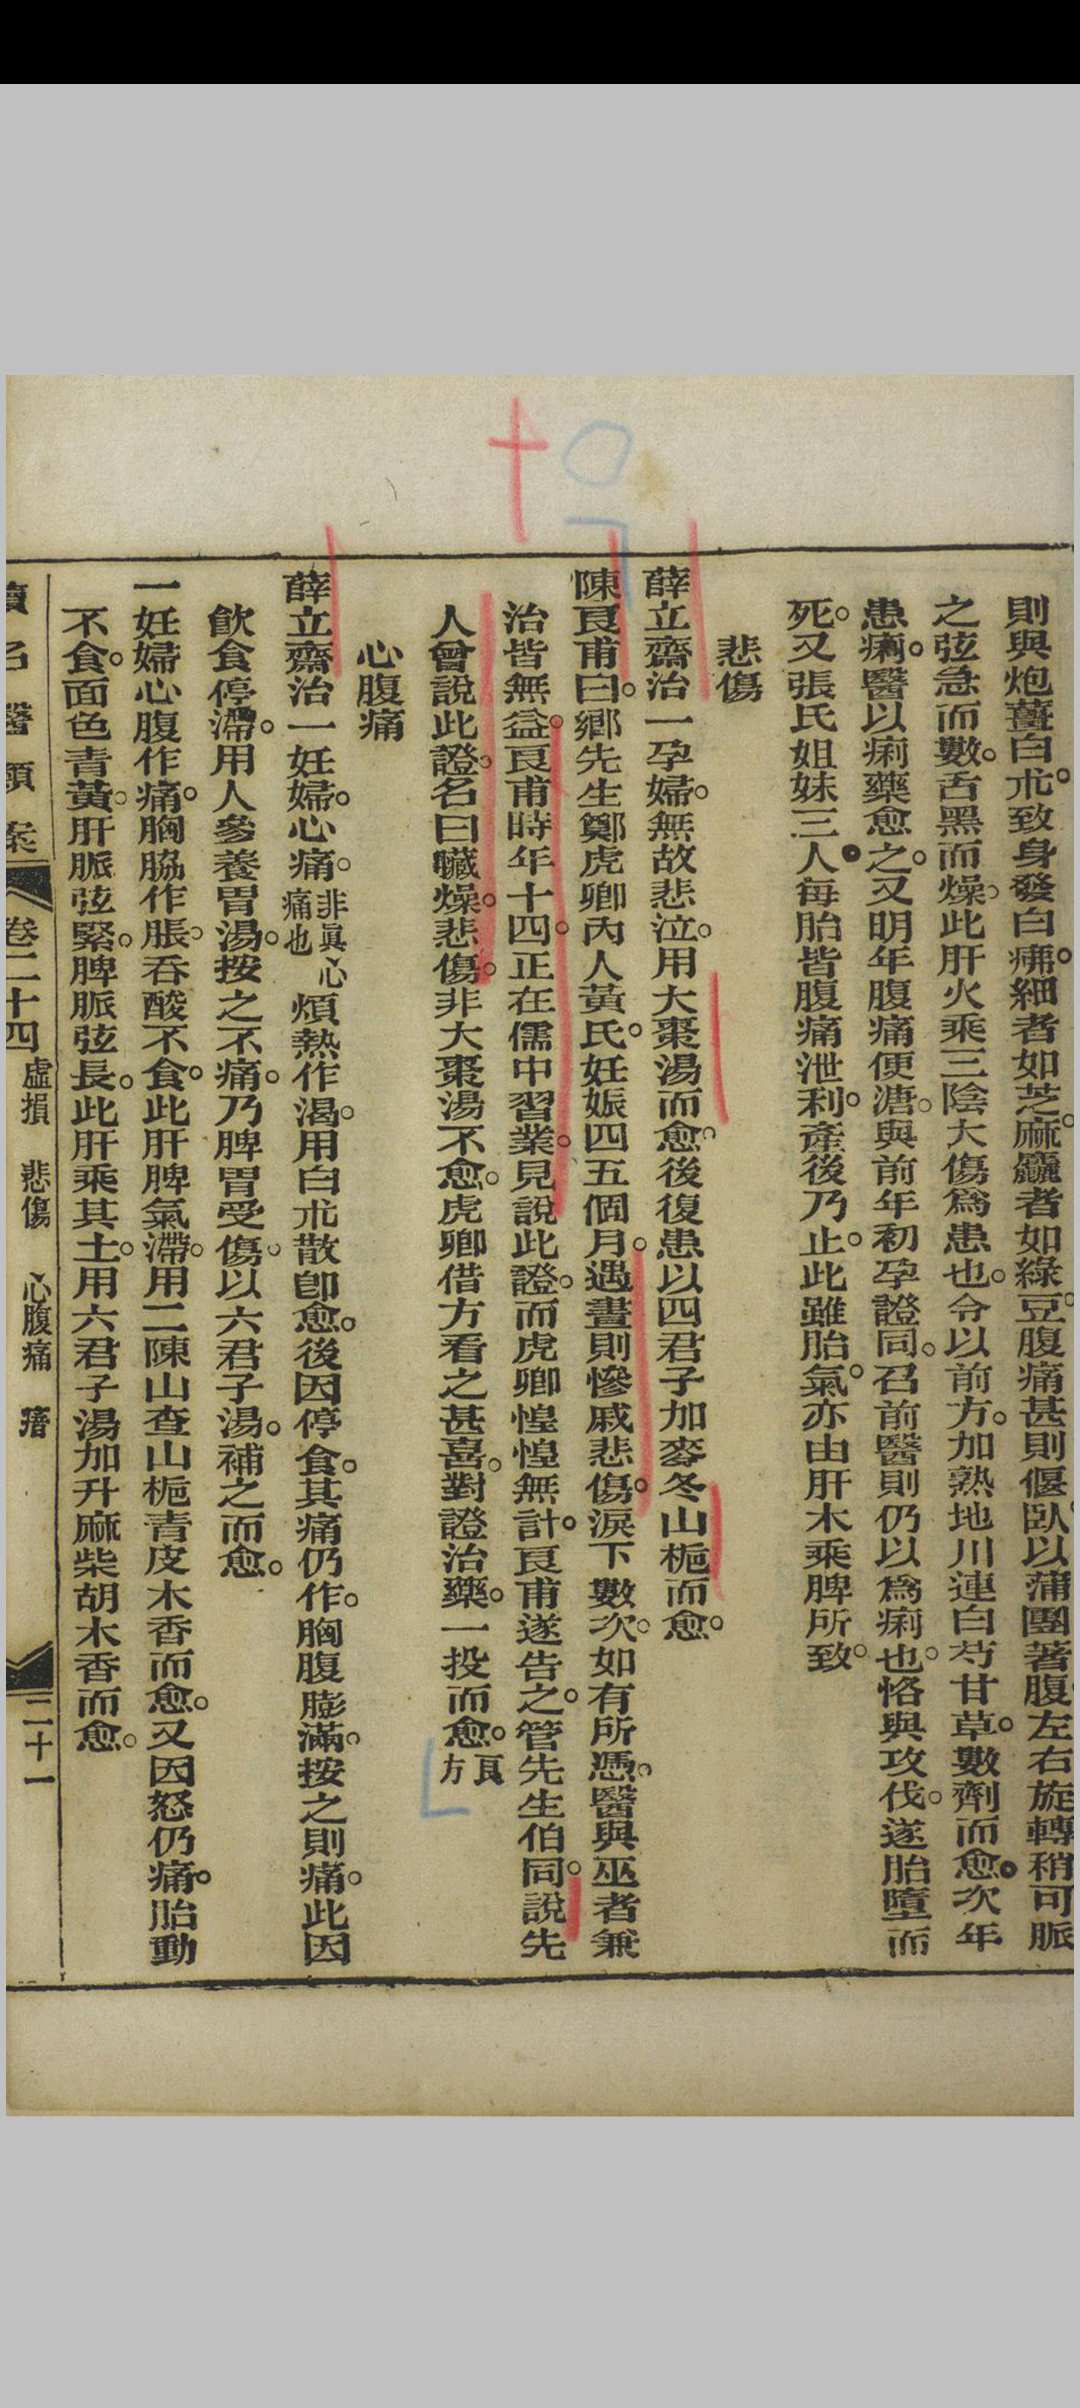 則與炮薑白朮。致身發白㾦。細者如芝麻。麤者如綠豆。腹痛甚則偃臥。以蒲團著腹。左右旋轉稍可。脈
之弦急而數。舌黑而燥。此肝火乘三陰大傷爲患也。令以前方。加熟地川連白芍甘草。數劑而愈。次年
患痢。醫以痢藥愈之。又明年腹痛便溏。與前年初孕證同。召前醫則仍以爲痢也。恪與攻伐。遂胎墮而
死。又張氏姐妹三人。每胎皆腹痛泄利。產後乃止。此雖胎氣。亦由肝木乘脾所致。
悲傷
薛立齋治一孕婦。無故悲泣。用大棗湯而愈。後復患以四君子加麥冬山梔而愈。
陳良甫曰。鄉先生鄭虎卿內人黃氏。妊娠四五個月。遇晝則慘戚悲傷。淚下數次。如有所憑。醫與巫者兼
治皆無益。良甫時年十四。正在儒中習業。見說此證。而虎卿惶惶無計。良甫遂告之。管先生伯同。說先
人曾說此證。名曰臟燥。悲傷。非大棗湯不愈。虎卿借方看之甚喜。對證治藥。一投而愈。良方
心腹痛
薛立齋治一妊婦。心痛。非眞心痛也煩熱作渴。用白朮散卽愈。後因停食。其痛仍作。胸腹膨滿。按之則痛。此因
飲食停滯。用人參養胃湯。按之不痛。乃脾胃受傷。以六君子湯。補之而愈。
一妊婦心腹作痛。胸脇作脹。吞酸不食。此肝脾氣滯。用二陳山查山梔青皮木香而愈。又因怒仍痛。胎動
不食。面色青黃。肝脈弦緊。脾脈弦長。此肝乘其土。用六君子湯加升麻柴胡木香而愈。
續名醫類案 卷二十四 虛損 悲傷 心腹痛 二十一